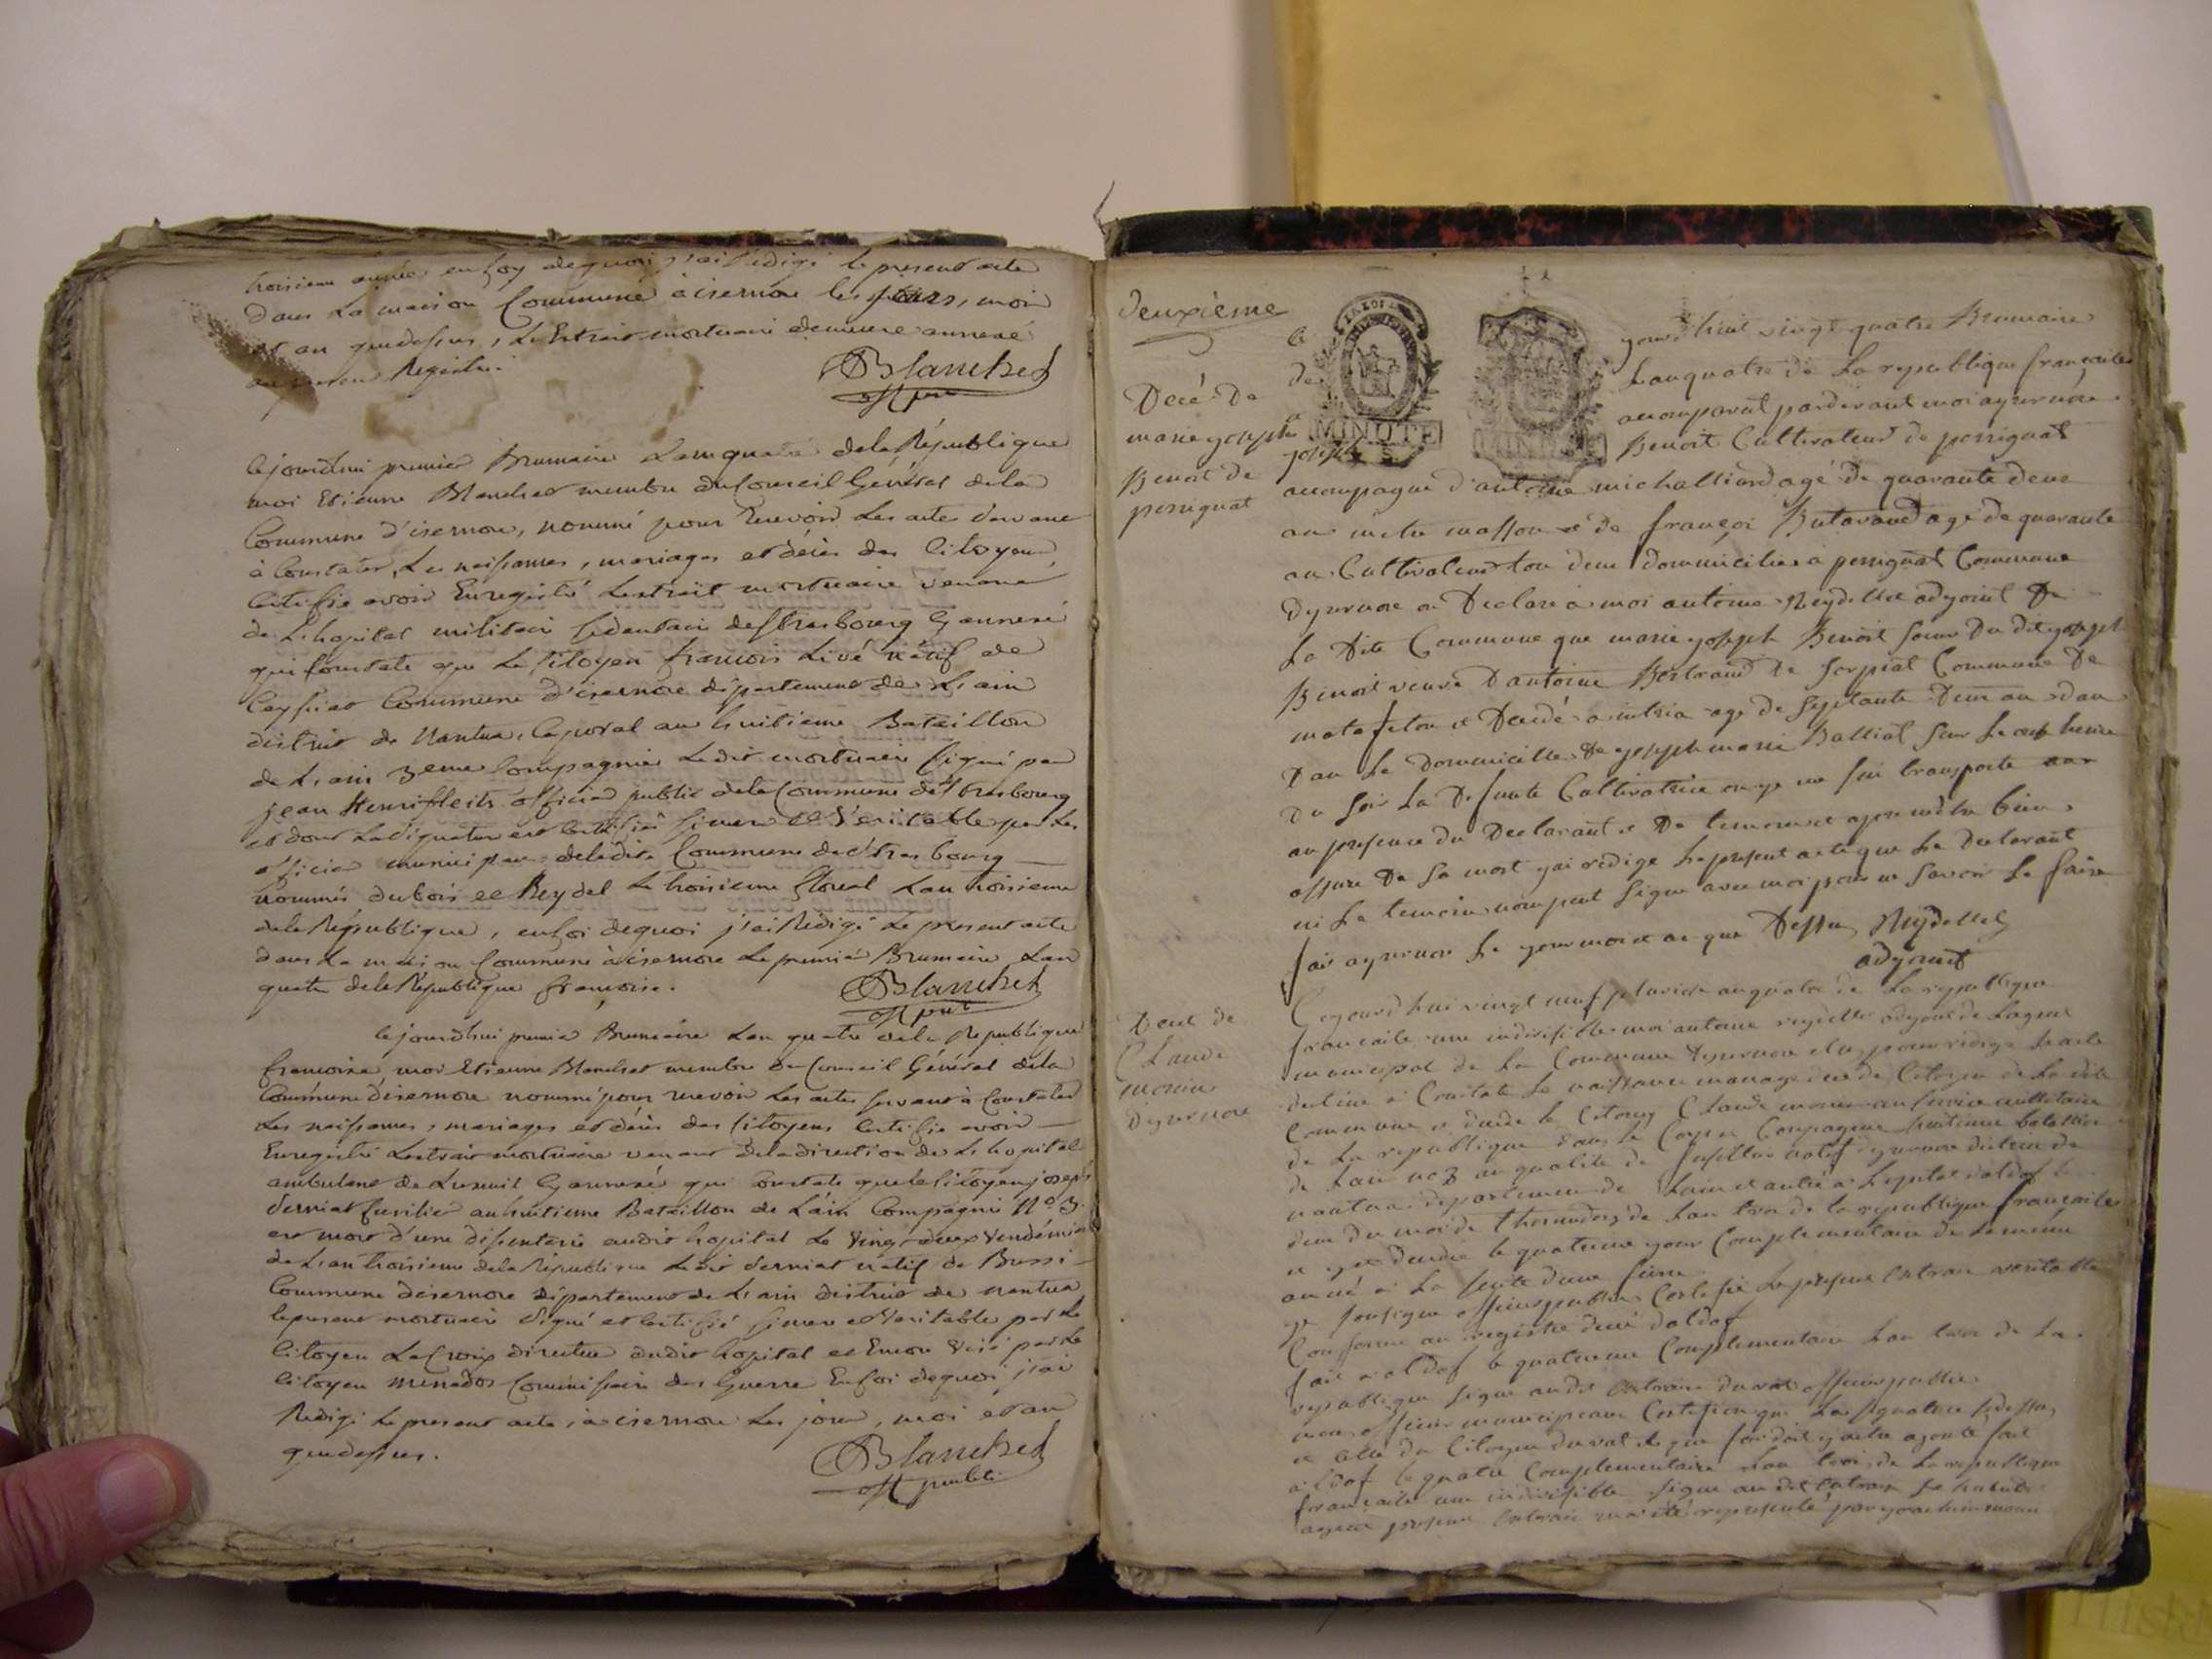 troisieme année en foy de quoi j'ai rédigé le present acte
dans La maison Commune à isernore les jours, mois
et an que dessus, L'Extrait mortuaire demeure annexé
au present Registre.
Blanchet
off pub
Cejourdhui premier Brumaire L'an quatre de la République
moi Etienne Blanchet membre du Conseil Général de la
Commune d'isernore, nommé pour Recevoir Les actes servant
à Constater, Les naissances, mariages et décès des Citoyens
Certifie avoir Enregistré L'extrait mortuaire venant
de L'hopital militaire sedentaire de Strasbourg
qui Constate que Le Citoyen francois Levé natif de
Ceyssiat Commune d'isernore département de L'ain
district de Nantua, Caporal au huitieme Bataillon
de L'ain 3eme Compagnie Ledit mortuaire signé par
jean officier public de la Commune de Strasbourg
et dont La signature est Certifié sincere et Véritable par Les
officier municipaux de la dite Commune de Strasbourg
nommés dubois et Reydel Le troisieme floreal L'an troisieme
de la République, en foi de quoi j'ai Rédigé Le present acte
dans La maison Commune à isernore Le premier Brumaire L'an
quatre de la République françoise.
Blanchet
off pub
Cejourdhui premier Brumaire L'an quatre de la Republique
francoise moi Etienne Blanchet membre du Conseil Général de la
Commune d'isernore nommé pour recevoir Les actes servant à Constater
Les naissances, mariages et décès des Citoyens Certifie avoir
Enregistré L'extrait mortuaire venant de la direction de L'hopital
ambulant de qui Constate que le Citoyen joseph
derniat fusilier au huitieme Bataillon de L'ain Compagnie No 3.
est mort d'une disenterie audit hopital Le Vingt deux Vendémiaire
de L'an troisieme de la République Ledit derniat natif de Bussi
Commune d'isernore département de L'ain district de nantua
le present mortuaire signé et Certifié sincere et Veritable par Le
Citoyen LaCroix directeur dudit hopital et Encore Visé par Le
Citoyen menados Commissaire des Guerre En foi de quoi j'ai
Redigé Le present acte, à isernore Les jour, moi et an
que dessus.
Blanchet
off public
Deuxième
Décè De
marie yoseph
Benoit de
perrignat
MINUTE
LA LOI
yourdhuit vingt quatre Brumaire
L'an quatre de La republique françaile
a comparut pardevant moi ayzernore
yoseph Benoit Cultivateur de perrignat
accompagné d'antoine michalliard agé de quarante deux
an metre masson et de françoi Butavand agé de quarante
an Cultivateur tou deux domicilies a perrignat Commune
Dyzernore a Declaré a moi antoine Reydellet adyoint De
La Dite Commune que marie yoseph Benoit seur Du dit yoseph
Benoit veuve D'antoine Bertrand de Commune De
matafelon et Decedé a intria agé de septante Deux an dan
Dan Le Domicille De yoseph marie Balliat sur Le onse heure
Du soir La Defunte Cultivatrice on ye me sui transporte
au presence du Declarant et De temoin et apre mètre bien
assure De sa mort yai redige Le present acte que Le declarant
ni Le temoin non peut signe avec moi pour ne savoir Le faire
fait ayzernore Le your moi et an que Dessu Reydellet
adyoint
Decé de
Claude
morin
Dyzernore
Ceyourdhui vingt neuf pluviose an quatre de La republique
francaile une indivisible moi antoine reydellet adyoint de Lagent
municipal de La Commune Dyzernore elu pour redige Le acte
destine a Constaté Le naissance mariage deces de Citoyen de La dite
Commune et decede le Citoyen Claude morin au service millitaire
de La republique dans le Compagnie huitieme batallion
de Lain no 3 an qualite de fusillier natif dyzernore district de
nantua departement de Lain et antre a Lopital daldof le
deux du moi de thermidor de Lan troi de la republique francaile
et y et decedee le quatrieme your Complementaire de La meme
anné a La suite dune fievre
ye soussigne officier publique Certifie Le present Extrai veritable
Conforme au registre decé daldof
fait a aldof le quatrieme Complementaire Lan troi de La
republique signe audit Extrai duval officier publique
nou officier municipeaux Certifion que La signature si dessu
et celle du Citoyen duval et que foi doit y aitre ayouté fait
a aldof le quatre Complementaire Lan troi de La republique
francaile une indivisible signe au dit Extrai